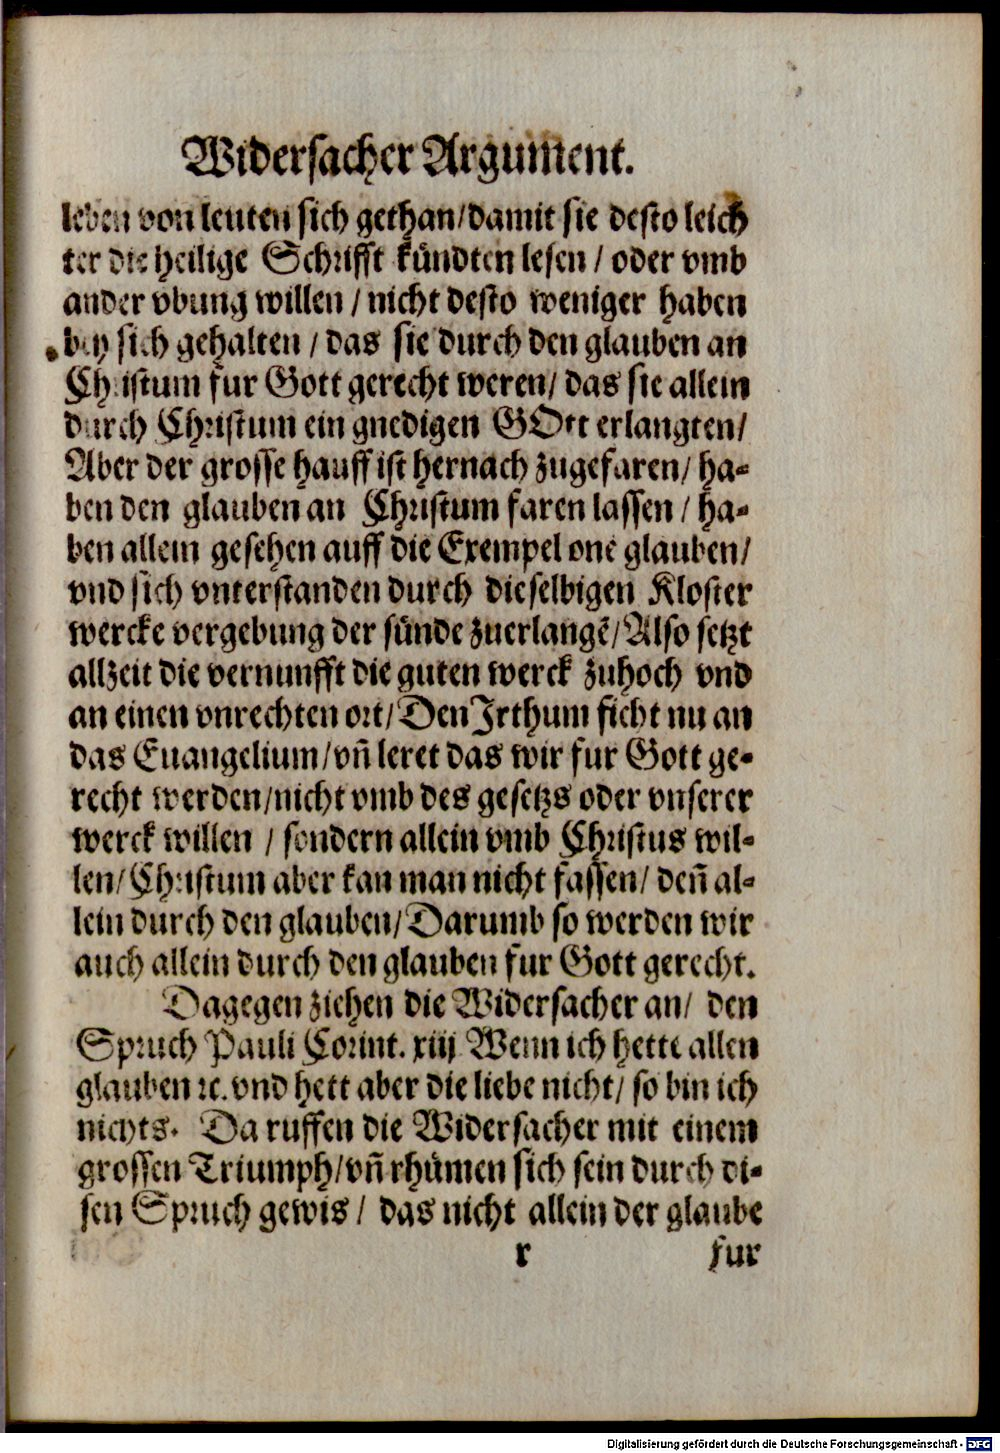 Widersacher Argument.
leben von leuten sich gethan/damit sie desto leich
ter die heilige Schrifft kündten lesen / oder vmb
ander vbung willen / nicht desto weniger haben
bey sich gehalten / das sie durch den glauben an
Christum fur Gott gerecht weren/ das sie allein
durch Christum ein gnedigen GOtt erlangten/
Aber der grosse hauff ist hernach zugefaren/ ha-
ben den glauben an Christum faren lassen / ha-
ben allein gesehen auff die Exempel one glauben/
vnd sich vnterstanden durch dieselbigen Kloster
wercke vergebung der sünde zuerlangẽ/Also setzt
allzeit die vernunfft die guten werck zuhoch vnd
an einen vnrechten ort/Den Jrthum ficht nu an
das Euangelium/vñ leret das wir fur Gott ge-
recht werden/nicht vmb des gesetzs oder vnserer
werck willen / sondern allein vmb Christus wil-
len/Christum aber kan man nicht fassen/ deñ al-
lein durch den glauben/Darumb so werden wir
auch allein durch den glauben fur Gott gerecht.
Dagegen ziehen die Widersacher an/ den
Spruch Pauli Corint. xiij Wenn ich hette allen
glauben ꝛc. vnd hett aber die liebe nicht/ so bin ich
nichts. Da ruffen die Widersacher mit einem
grossen Triumph/vñ rhümen sich sein durch di-
sen Spruch gewis / das nicht allein der glaube
r fur
Digitalisierung gefördert durch die Deutsche Forschungsgemeinschaft - DFG